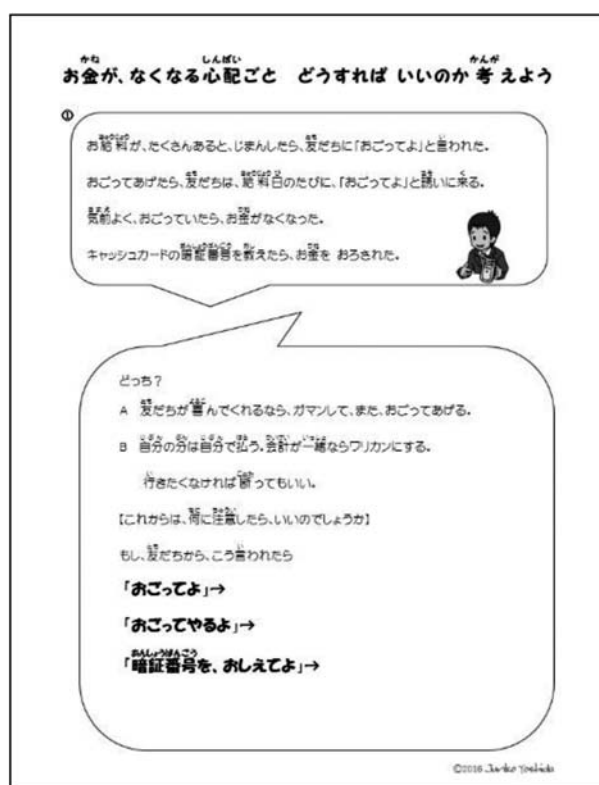 お金が、なくなる心配ごと どうすれば いいのか 考えよう
①
お給料が、たくさんあると、じまんしたら、友だちに「おごってよ」と言われた。
おごってあげたら、友だちは、給料日のたびに、「おごってよ」と誘いに来る。
気前よく、おごっていたら、お金がなくなった。
キャッシュカードの暗証番号を教えたら、お金を おろされた。
どっち？
A 友だちが喜んでくれるなら、ガマンして、また、おごってあげる。
B 自分の分は自分で払う。会計が一緒ならワリカンにする。
行きたくなければ断ってもいい。
【これからは、何に注意したら、いいのでしょうか】
もし、友だちから、こう言われたら
「おごってよ」→
「おごってやるよ」→
「暗証番号を、おしえてよ」→
©2016 Junko Yoshida